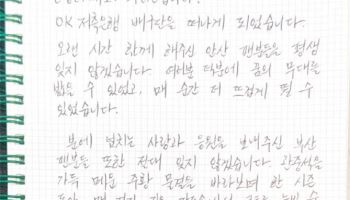 OK 저축은행 배구단을 떠나게 되었습니다.
오랜 시간 함께 해주신 안산 팬분들은 평생
잊지 않겠습니다. 여러분 덕분에 꿈의 무대를
밟을 수 있었고, 매 순간 더 뜨겁게 뛸 수
있었습니다.
분에 넘치는 사랑과 응원을 보내주신 부산
팬분들 또한 절대 잊지 않겠습니다. 관중석을
가득 메운 주황 물결을 바라보며 한 시즌